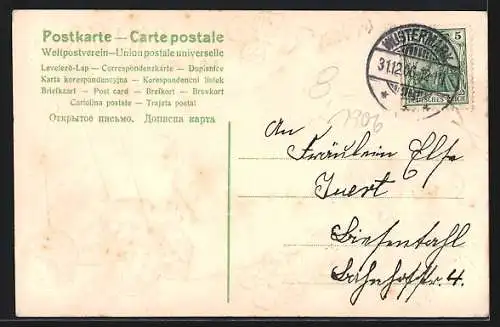 Postkarte — Carte postale
Weltpostverein — Union postale universelle
Levelező-Lap — Correspondenzkarte — Dopisnice
Karta korespondencyjna — Korespondenční lístek
Briefkaart — Post card — Brefkort — Brevkort
Cartolina postale — Tarjeta postal
Открытое письмо. Дописна карта
WUSTERMARK
31.12.06
5
DEUTSCHES REICH
8
1906
An
Fräulein Else
Juert
Biesenthal
Bahnhofstr. 4.